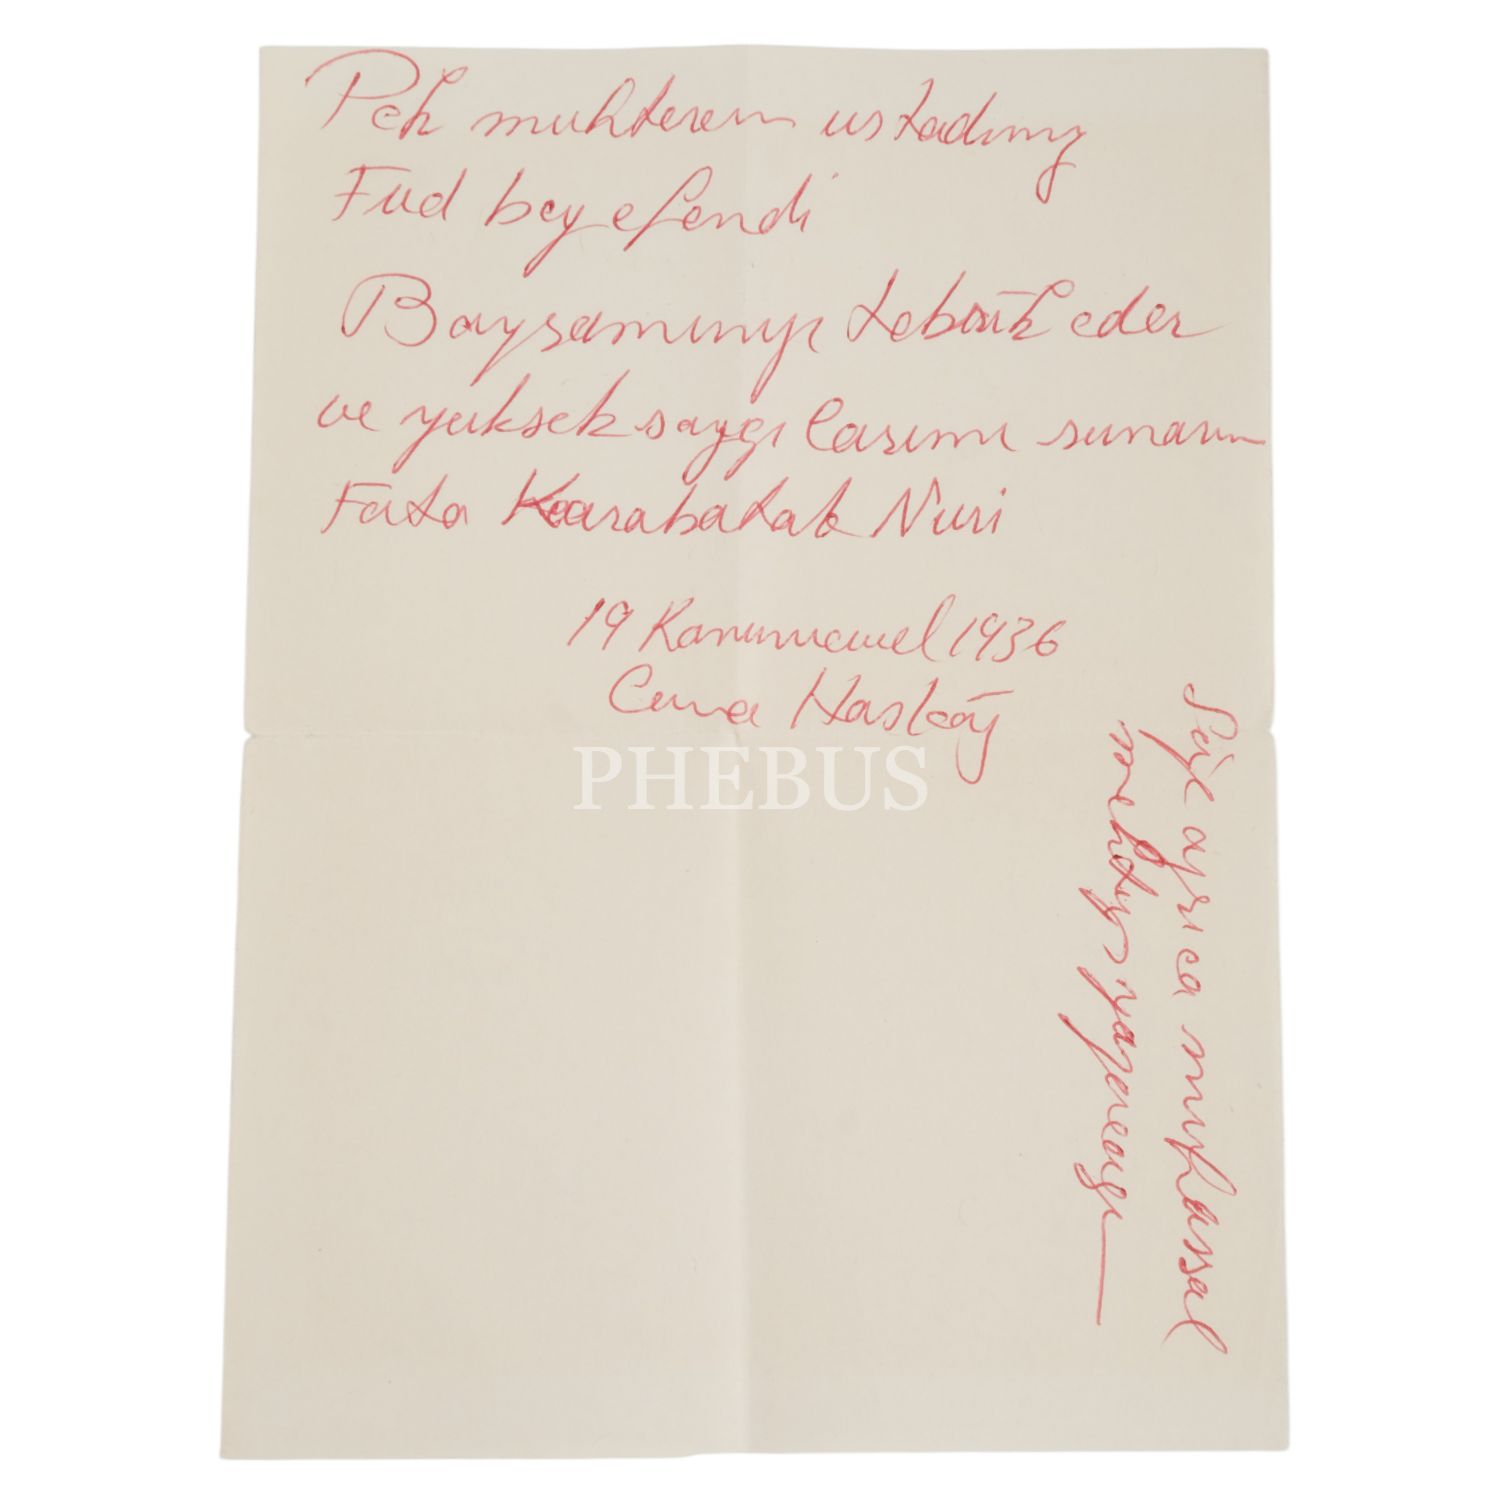 Pek muhterem ustadımız
Fud bey efendi
Bayramınızı tebrik eder
ve yuksek saygı larımı sunarım
Fata Karabatak Nuri
19 Kanunuevvel 1936
Cuma Hasköy
Size ayrıca mufassal
mektup yazacağız
PHEBUS